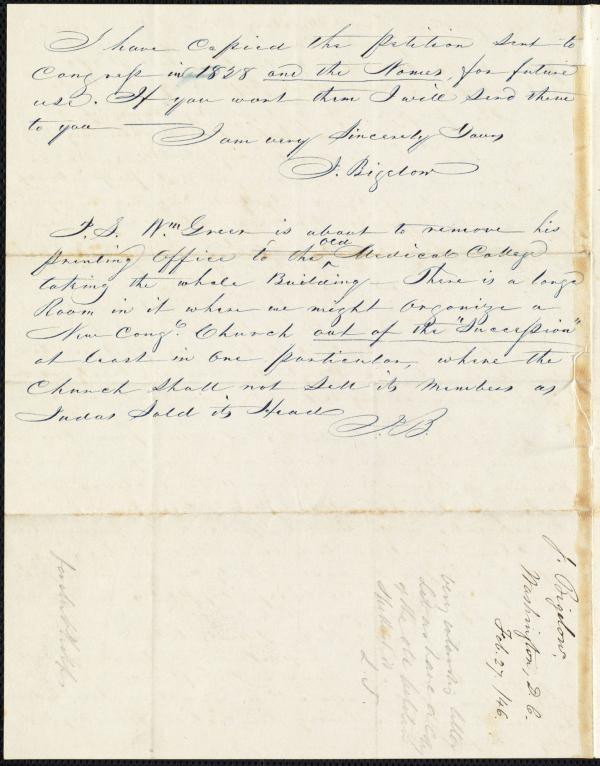 I have copied the Petition sent to
Congress in 1828 and the Names, for future
use. If you want them I will send them
to you
I am very Sincerely Yours
J. Bigelow
P.S. Wm Greer is about to remove his
printing office to the old Medical College
taking the whole Building. There is a large
Room in it where we might organize a
New Congl. Church out of the "Inscription"
at least in one particular, where the
Church shall not sell its members as
Judas Sold its Head
J.B.
J. Bigelow,
Washington, D.C.
Feb. 27, /46.
very interesting letter
Let us have a copy
of the old
L. T.